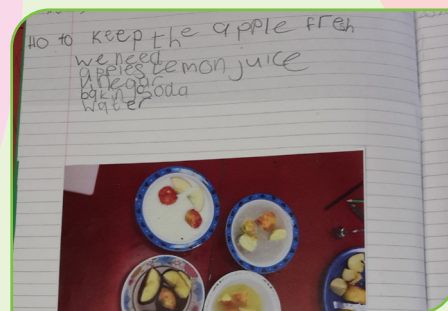 HO to keep the apple fresh
we need
apples lemon juice
vinegar
baking soda
water